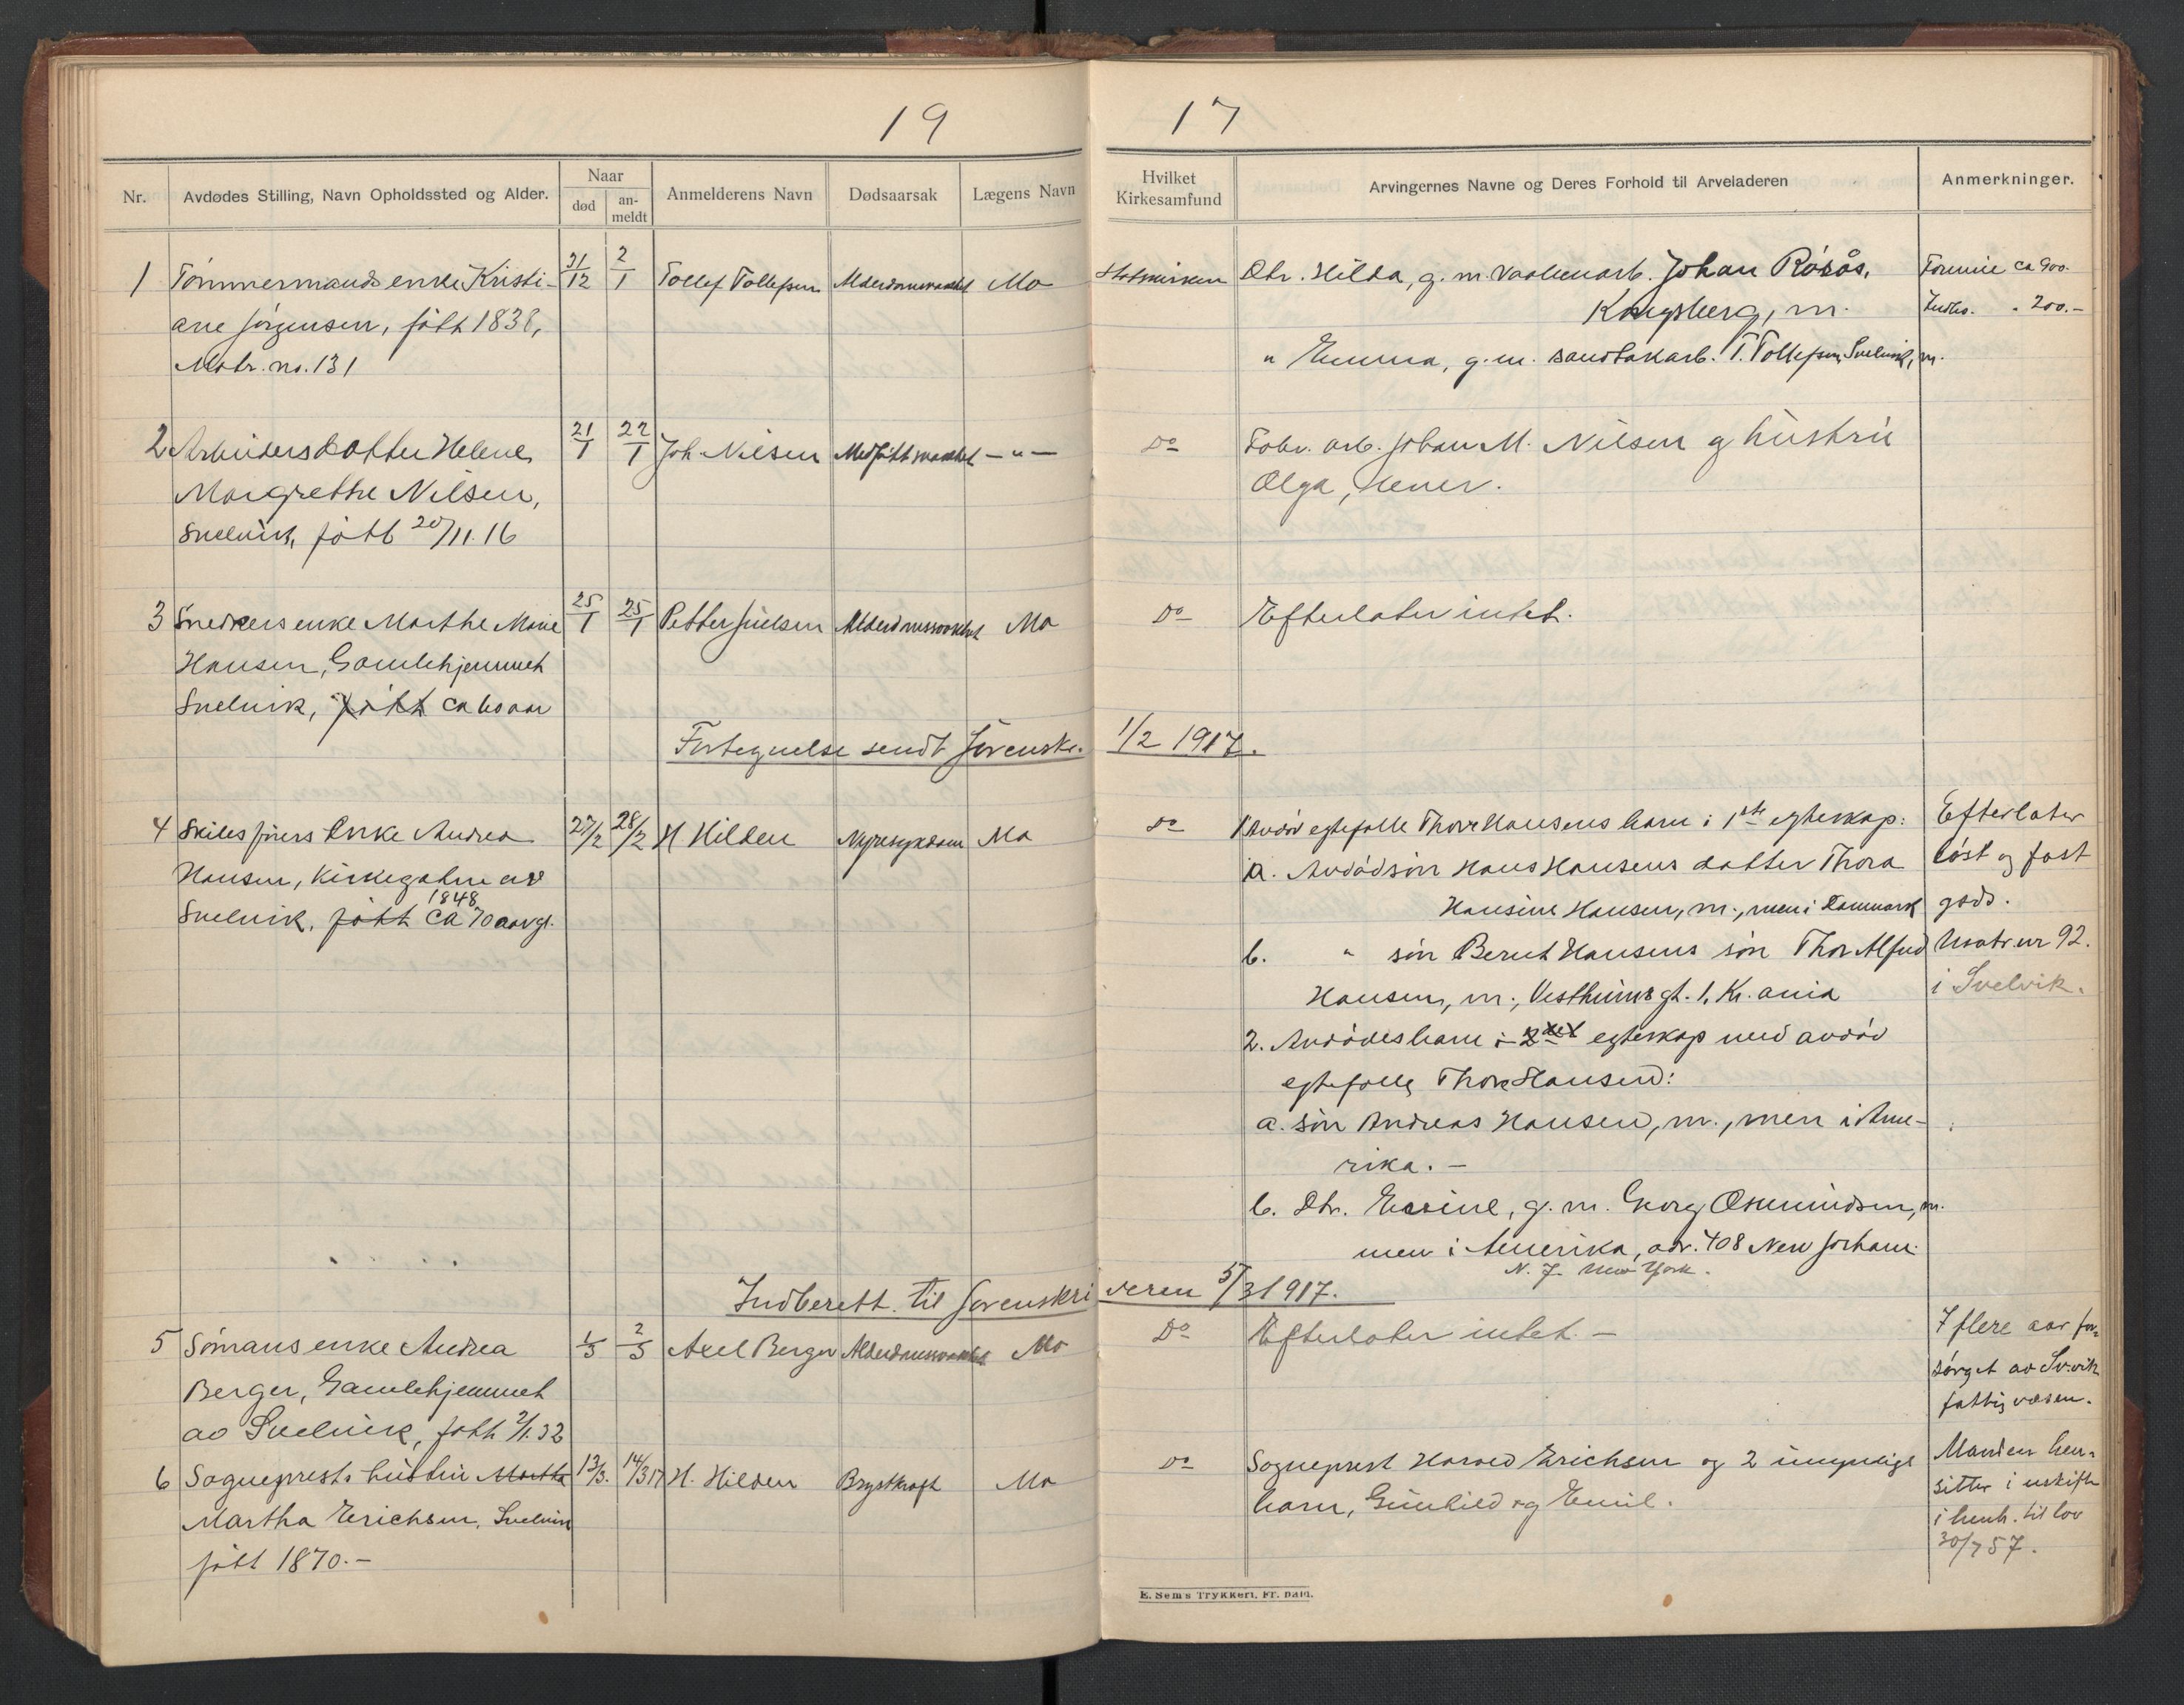 19 17
Nr. Avdødes Stilling, Navn Opholdssted og Alder. Naar død an-meldt Anmelderens Navn Dødsaarsak Lægens Navn Hvilket Kirkesamfund Arvingernes Navne og Deres Forhold til Arveladeren Anmerkninger.
1 Tømmermands enke Kristi- 31/12 2/1 Tollef Tollefsen Alderdomssvakhet Mo Statskirken Dtr. Hilda, g. m. vaabenarb. Johan Røsås, Formue ca 900.-
ane Jørgensen, født 1838, Kongsberg, m. Indbo. " 200.-
Matr. no. 131 " Emma, g. m. sandtakarb. T. Tollefsen, Svelvik, m.
2 Arbeidersdatter Helene 21/1 22/1 Joh. Nilsen Medfødt svakhet -"- Do Fabr. arb. Johan M. Nilsen og hustru
Margrethe Nilsen, Olga, Nener.
Svelvik, født 20/11.16
3 Snedkers enke Marthe Marie 25/1 25/1 Petter Juelsen Alderdomssvakhet Mo Do Efterlater intet.
Hansen, Gamlehjemmet
Svelvik, født ca 60 aar
Fortegnelse sendt sorenskr. 1/2 1917.
4 Skibsførers enke Andrea 27/2 28/2 H Hilden Nyresykdom Mo Do 1 Avdød egtefælle Thor Hansens barn i 1ste egteskap: Efterlater
Hansen, Kirkegatene av a. Avdød søn Hans Hansens datter Thora løst og fast
1848
Svelvik, født ca 70 aar gl. Hansine Hansen, m., men i Danmark gods.
b. " søn Bernt Hansens søn Thor Alfred Matr. nr 92.
Hansen, m., Vestheims gt. 1, Kr.ania i Svelvik.
2. Avdødes barn i 2det egteskap med avdød
egtefælle Thor Hansen:
a. søn Andreas Hansen, m., men i Ame-
rika. -
b. Dtr. Elesine, g. m. Georg Osmundsen, m.
men i Amerika, adr. 408 New
N. J. New York.
Indberett. til sorenskriveren 5/3 1917.
5 Sømans enke Andrea 1/3 2/3 Axel Berger Alderdomssvakhet Mo Do Efterlater intet. - I flere aar for-
Berger, Gamlehjemmet sørget av Sv.vik
av Svelvik, født 2/1.32 fattigvæsen.
6 Sogneprests hustru Martha 13/3. 14/3 17 H. Hilden Brystkræft Mo Do Sogneprest Harald Erichsen og 2 umyndige Manden hen-
Martha Erichsen, Svelvik barn, Gunhild og Emil. sitter i uskifte
født 1870.- i henh. til lov
30/7 57.
E. Sem's Trykkeri, Fr. Hald.